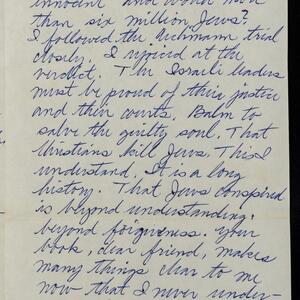 innocent and would more
than six million Jews?
I followed the Eichmann trial
closely. I rejoiced at the
verdict. The Israeli leaders
must be proud of their justice
and their courts. Balm to
salve the guilty soul. That
Christians kill Jews. This I
understand. It is a long
history. That Jews conspired
is beyond understanding,
beyond forgiveness. Your
book, dear friend, makes
many things clear to me
now that I never under-